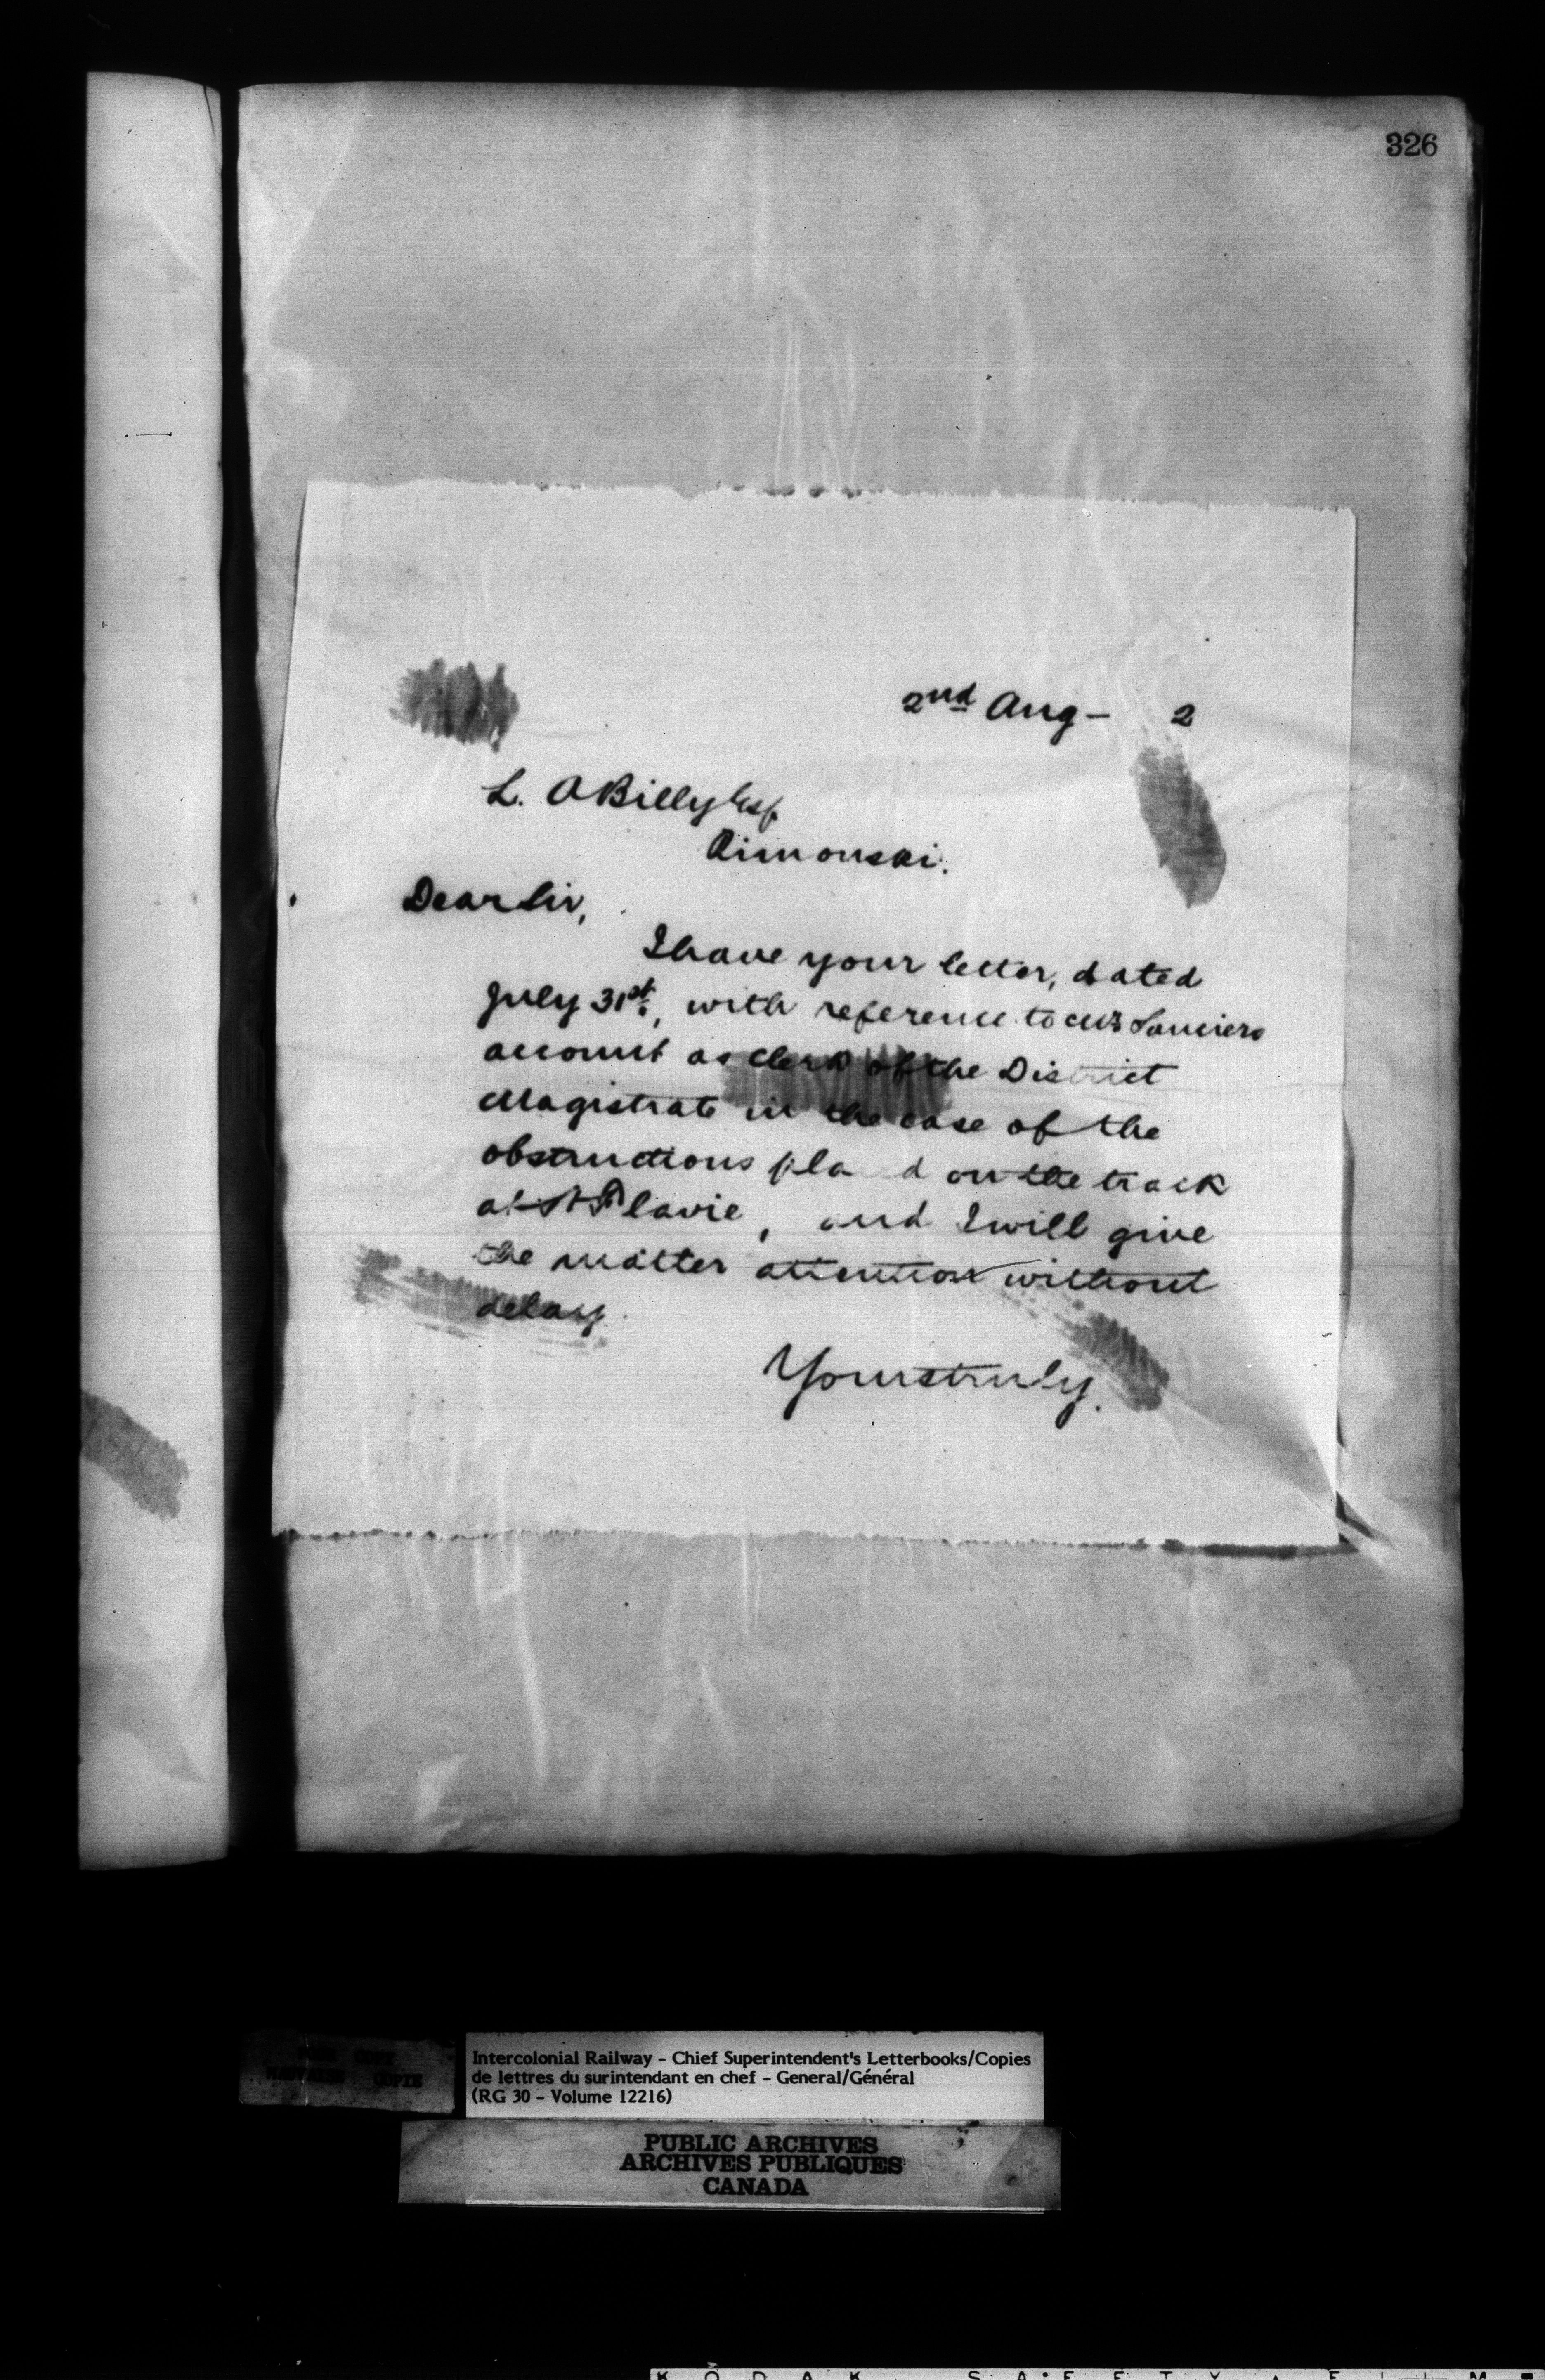 326
2nd Aug - 2
L. A Billy Esq.
Rimouski.
Dear Sir,
I have your letter, dated
July 31st, with reference to Mr Lauciers
account as clerk of the District
Magistrate in the case of the
obstructions pla d on the track
at St Flavie, and I will give
the matter attention without
delay.
Yours truly.
POOR COPY
MAUVAISE COPIE
Intercolonial Railway - Chief Superintendent's Letterbooks/Copies
de lettres du surintendant en chef - General/Général
(RG 30 - Volume 12216)
PUBLIC ARCHIVES
ARCHIVES PUBLIQUES
CANADA
KODAK SAFETY FILM